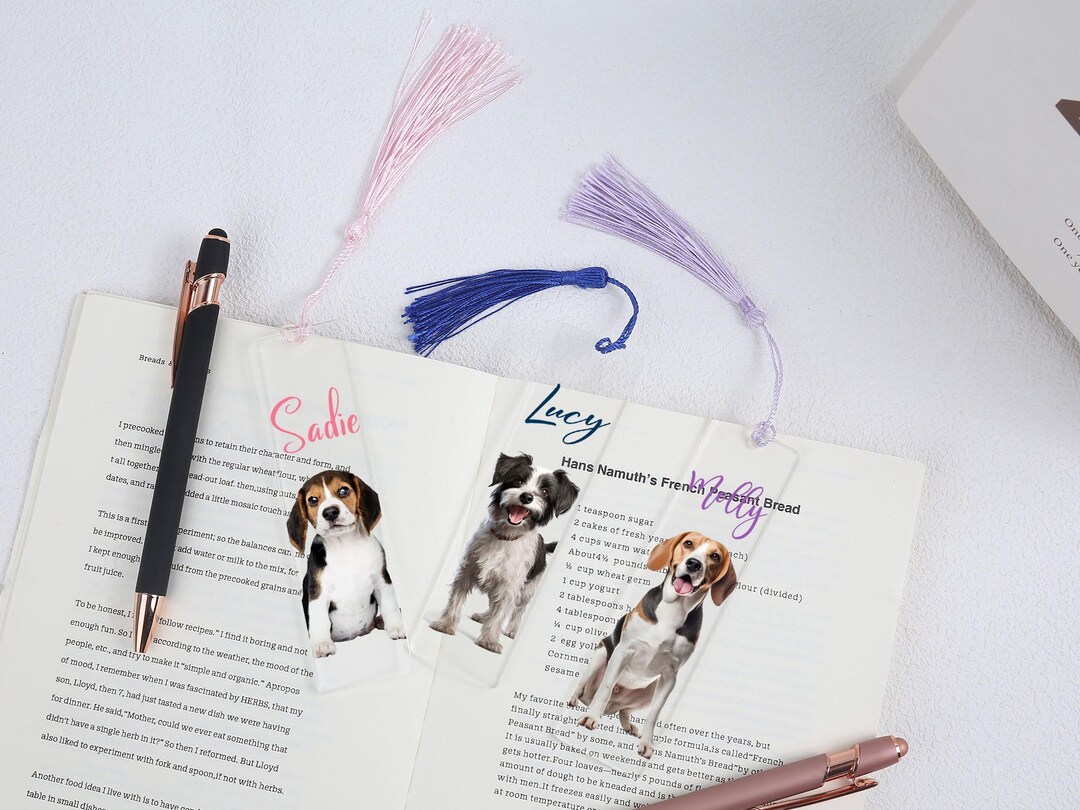 Breads &
I precooked
ns to retain their character and form, and
then mingle
with the regular wheat flour,
t all together
ead-out loaf. then, using
dates, and
dded a little mosaic touch
This is a first
periment; so the balances can
be improved.
add water or milk to the mix, for
I kept enough
uid from the precooked grains and
fruit juice.
To be honest, I
"follow recipes." I find it boring and not
enough fun. So I
according to the weather, the mood of the
people, etc., and try to make it "simple and organic." Apropos
of mood, I remember when I was fascinated by HERBS, that my
son, Lloyd, then 7, had just tasted a new dish we were having
for dinner. He said,"Mother, could we ever eat something that
didn't have a single herb in it?" So then I reformed. But Lloyd
also liked to experiment with fork and spoon,if not with herbs.
Another food idea I live with is to have
table in small dishes
Sadie
Lucy
Molly
Hans Namuth's French Peasant Bread
1 teaspoon sugar
2 cakes of fresh
each)
4 cups warm
About 4½ pounds
flour (divided)
½ cup wheat germ
1 cup yogurt
2 tablespoons
4 tablespoons
¼ cup olive
2 egg yolk
Cornmea
Sesame
My favorite bread
often over the years, but
finally straight
ple formula,is called"French
Peasant Bread" by some, and
ns Namuth's Bread"by
It is usually baked on weekends and gets better as
gets hotter.Four loaves—nearly 5 pounds of
amount of dough to be kneaded and is
with men.It freezes easily and
at room temperature
One
One ye